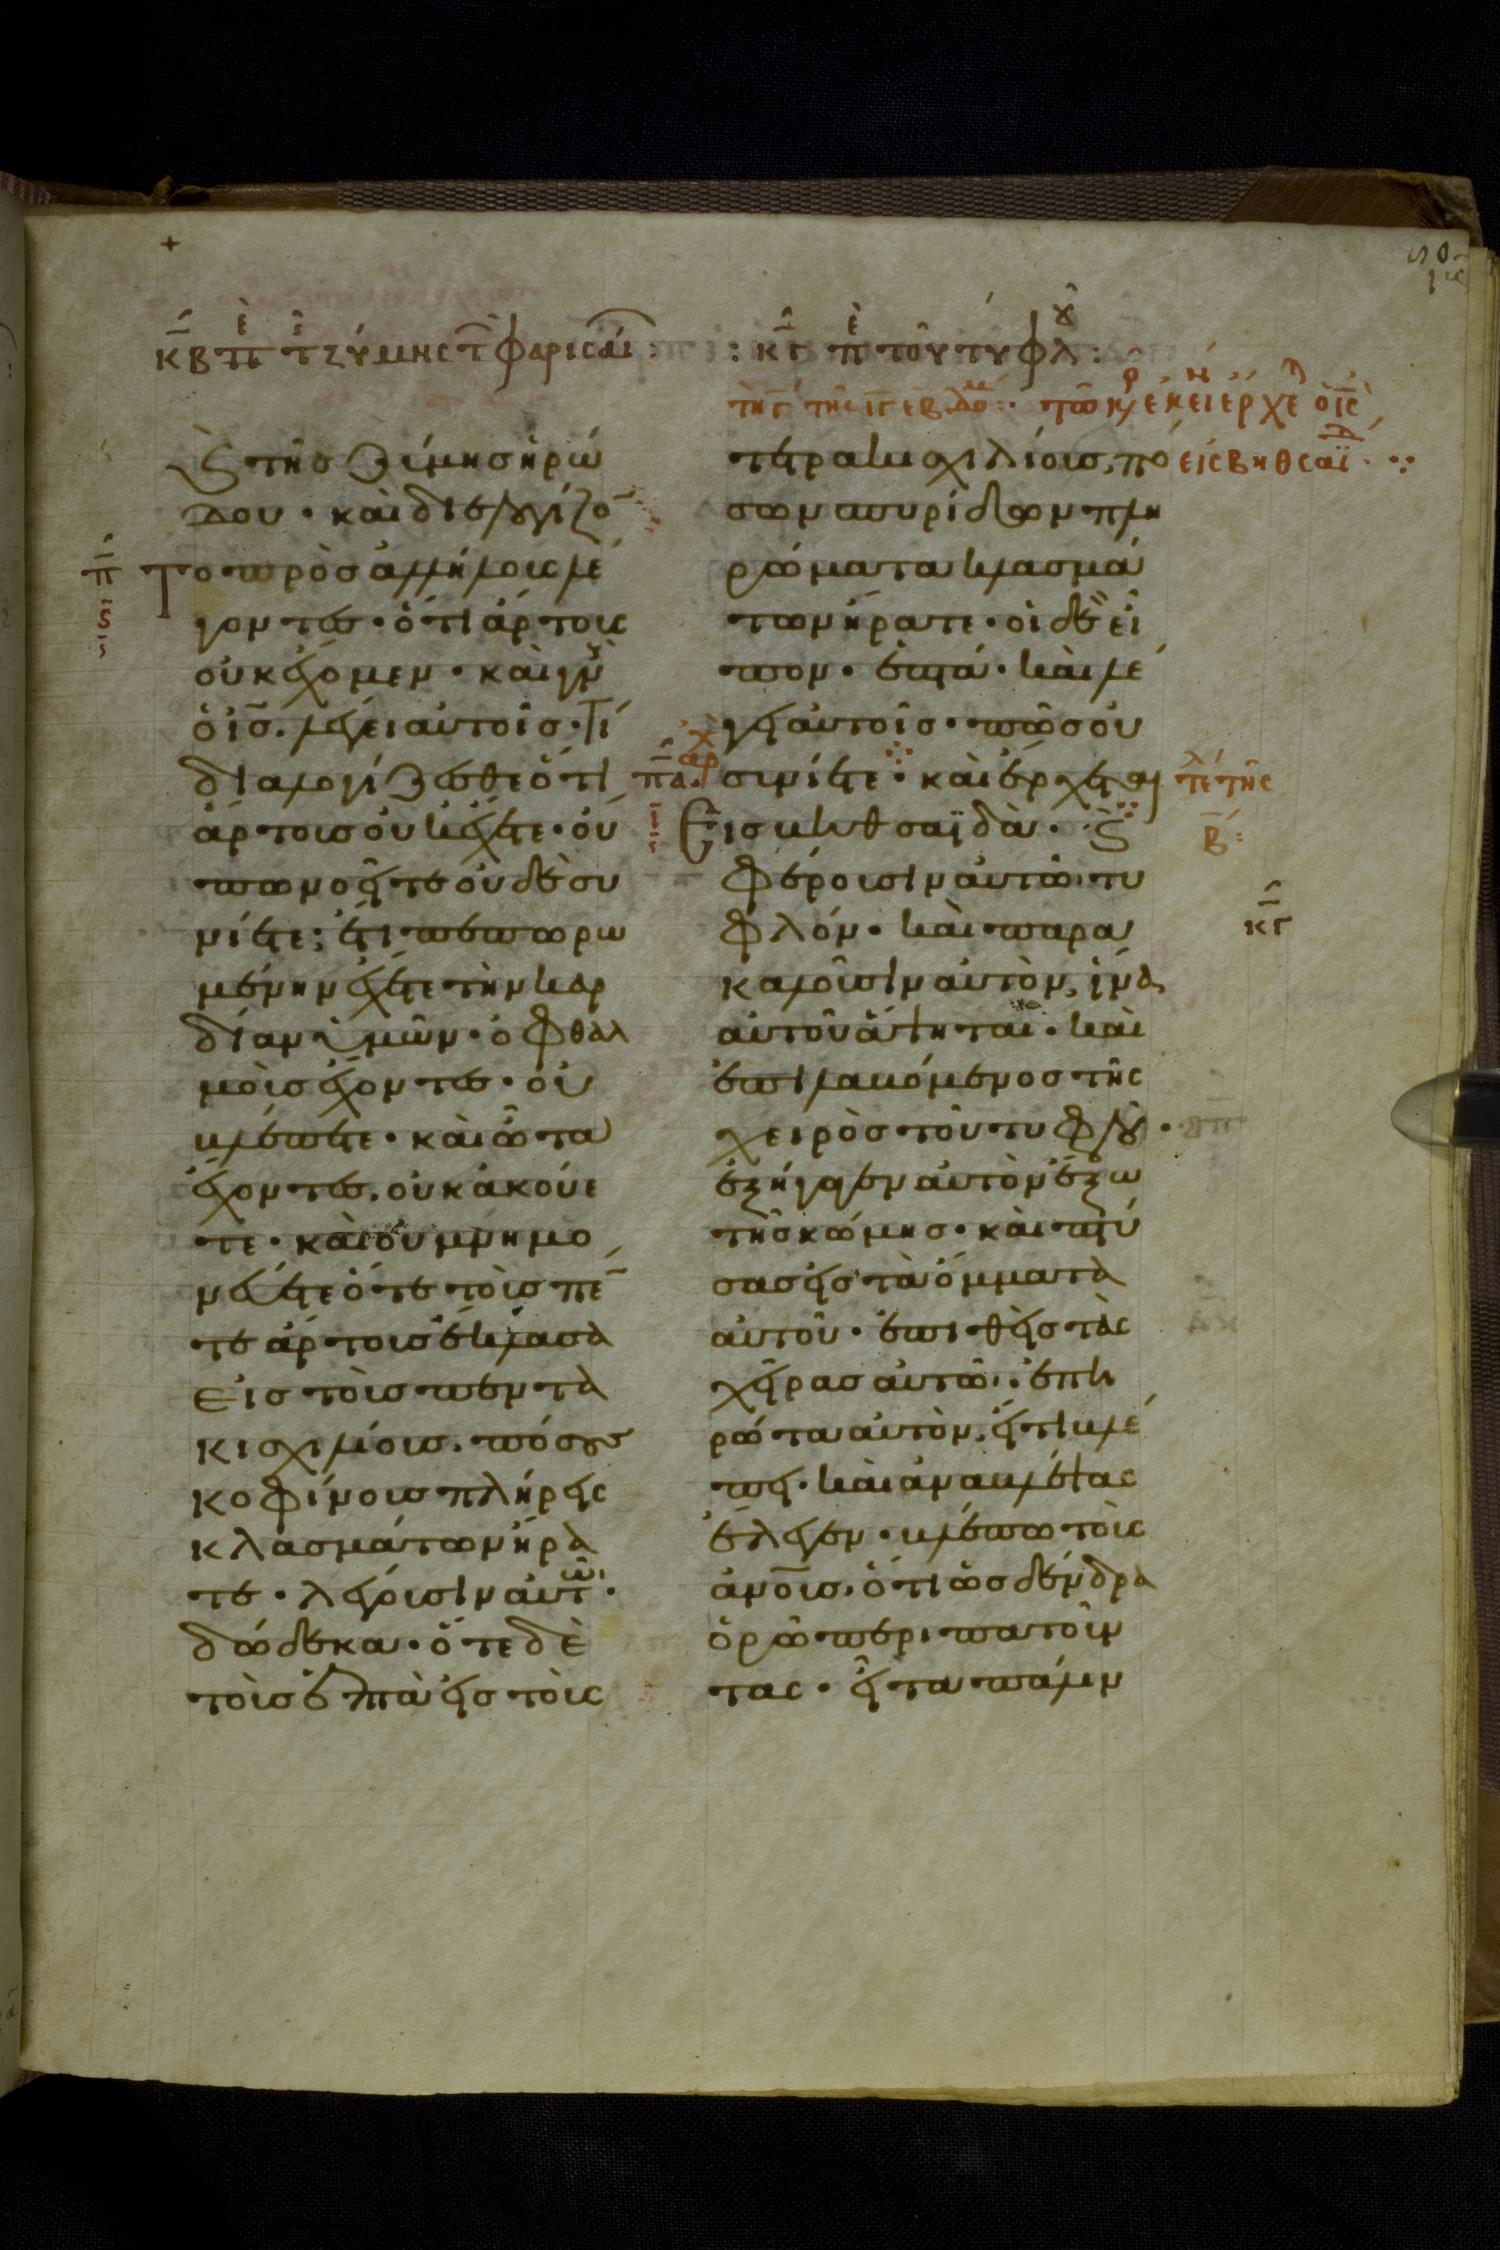 κβ πε τ ζύμης τ φαρισαί :
: κγ πε τοῦ τυφλοῦ :
καὶ τῆς ζύμης ἡρώ
δου · καὶ διελογίζο̅
π το πρὸς ἀλλήλους λέ
γοντες · ὅτι ἄρτους
οὐκ ἔχομεν · καὶ γνοὺς
ὁ ις̅ · λέγει αὐτοῖς · τί
διαλογίζεσθε ὅτι
ἄρτους οὐκ ἔχετε · οὔ
πω νοεῖτε οὐδὲ συ
νίετε ; ἔτι πεπωρω
μένην ἔχετε τὴν καρ
δίαν ὑμῶν · ὀφθαλ
μοὺς ἔχοντες · οὐ
βλέπετε · καὶ ὦτα
ἔχοντες, οὐκ ἀκούε
τε · καὶ οὐ μνημο
νεύετε ὅτε τοὺς πέ̅
τε ἄρτους ἔκλασα
εἰς τοὺς πεντα
κισχιλίους, πόσους
κοφίνους πλήρεις
κλασμάτων ἤρα
τε · λέγουσιν αὐτῶ ·
δώδεκα · ὅτε δὲ
τοὺς ἑπτὰ εἰς τοὺς
τῆ γ τῆς ιγ εβδο : τῶ κρ ἐκει ἔρχε ὁ ις
εἰς βηθσαϊδ
τετρακισχιλίους, πό
σων σπυρίδων πλη
ρώματα κλασμά
των ἤρατε · οἱ δὲ εἶ
πον · ἑπτά · καὶ λέ
γει αὐτοῖς · πῶς οὐ
πα ἀρχ συνίετε · καὶ ἔρχεται τε τῆς
εἰς βηθσαϊδὰ · καὶ β :
φέρουσιν αὐτῶ τυ
φλόν · καὶ παρα κγ
καλοῦσιν αὐτὸν, ἵνα
αὐτοῦ ἅψηται · καὶ
ἐπιλαβόμενος τῆς
χειρὸς τοῦ τυφλοῦ ·
ἐξήγαγεν αὐτὸν ἔξω
τῆς κώμης · καὶ πτύ
σας εἰς τὰ ὄμματα
αὐτοῦ · ἐπιθεὶς τὰς
χεῖρας αὐτῶ · ἐπη
ρώτα αὐτὸν, εἴ τι βλέ
πει · καὶ ἀναβλέψας
ἔλεγεν · βλέπω τοὺς
ανο̅υς, ὅτι ὡς δένδρα
ὁρῶ περιπατοῦν
τας · εἶτα πάλιν